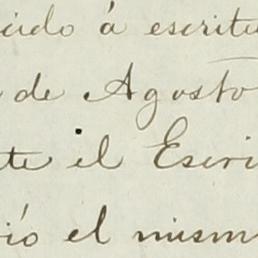 cido á escritu
de Agosto
te el Escri
ió el mism